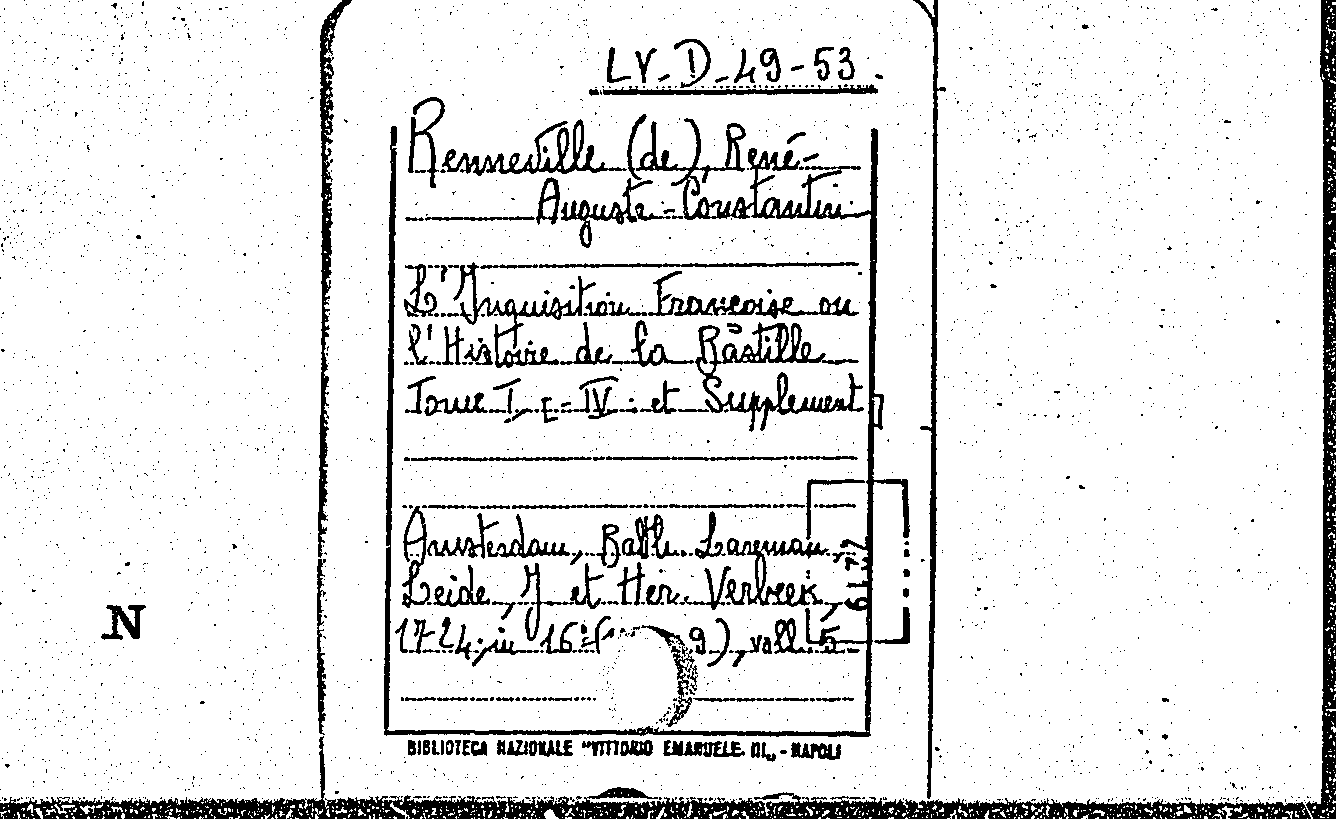 LV-D-49-53.
Renneville (de), René-
Auguste-Constantin
L'Inquisition Françoise ou
l'Histoire de la Bastille
Tome I, I-IV: et Supplement
Amsterdam, Balth. Lakeman,
Leide, J et Her. Verbeek,
1724; in 16º 9), voll. 5
N
BIBLIOTECA NAZIONALE "VITTORIO EMANUELE III„ - NAPOLI